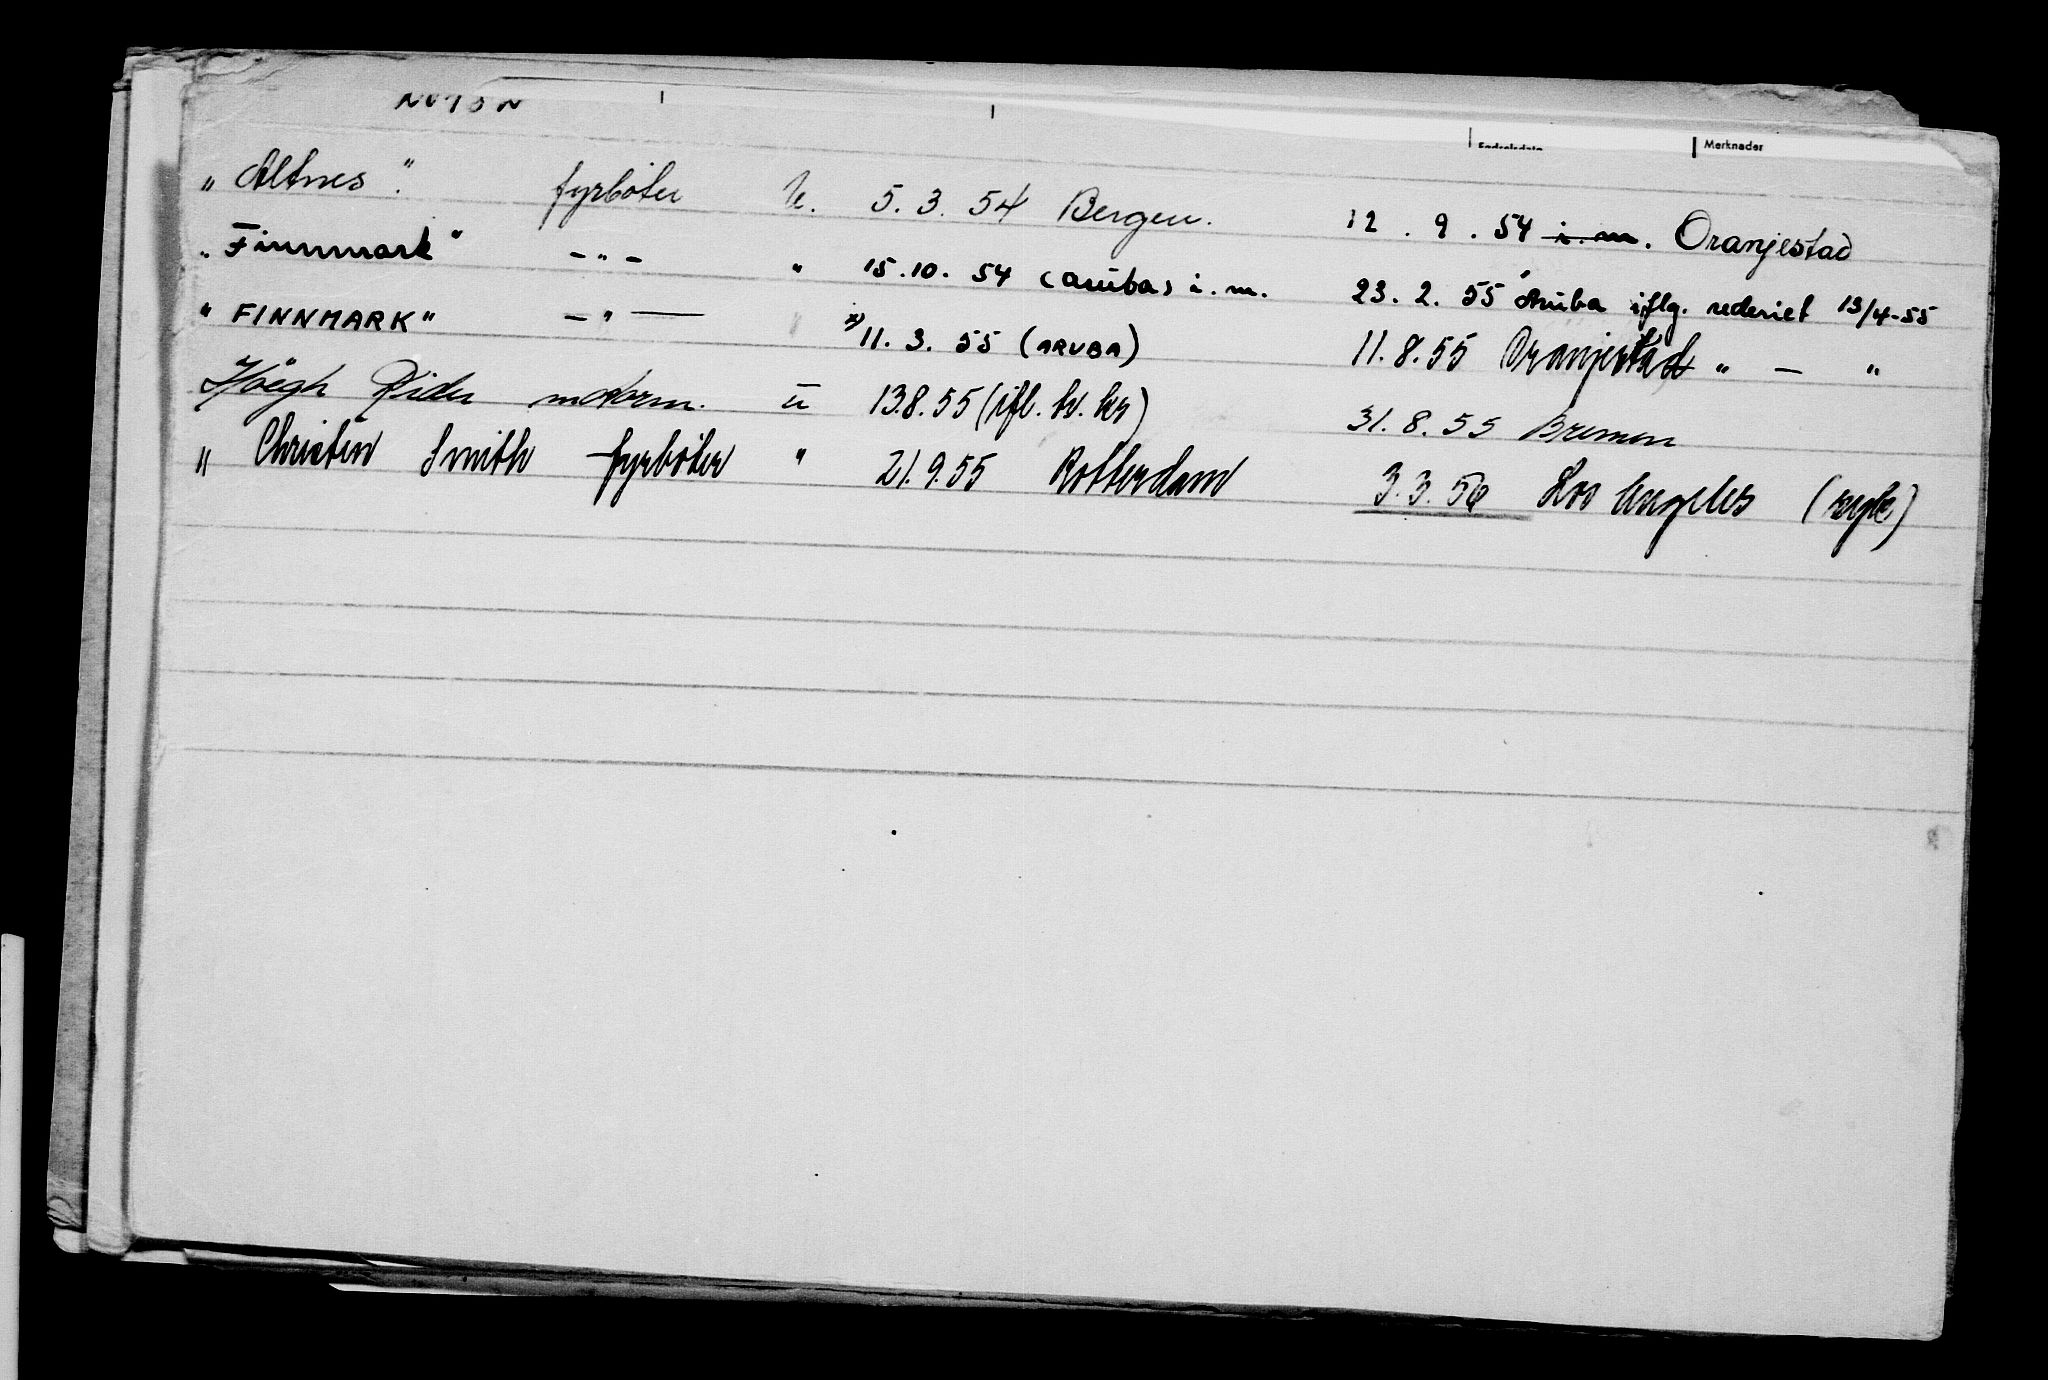 Merknader
„ Altnes ". fyrbøter U. 5. 3. 54 Bergen. 12. 9. 54 i.m. Oranjestad
„ Finnmark " - " - " 15.10. 54 (Aruba) i.m. 23. 2. 55 Aruba iflg. rederiet 13/4-55
" FINNMARK" - " — " x) 11. 3. 55 (ARUBA) 11.8.55 Oranjestad " — "
Höegh Rider motorm. u 13.8.55 (ifl. 31.8.55 Bremen
" Christen Smith fyrbøter " 21.9.55 Rotterdam 3.3.56 Los Angeles (syk)